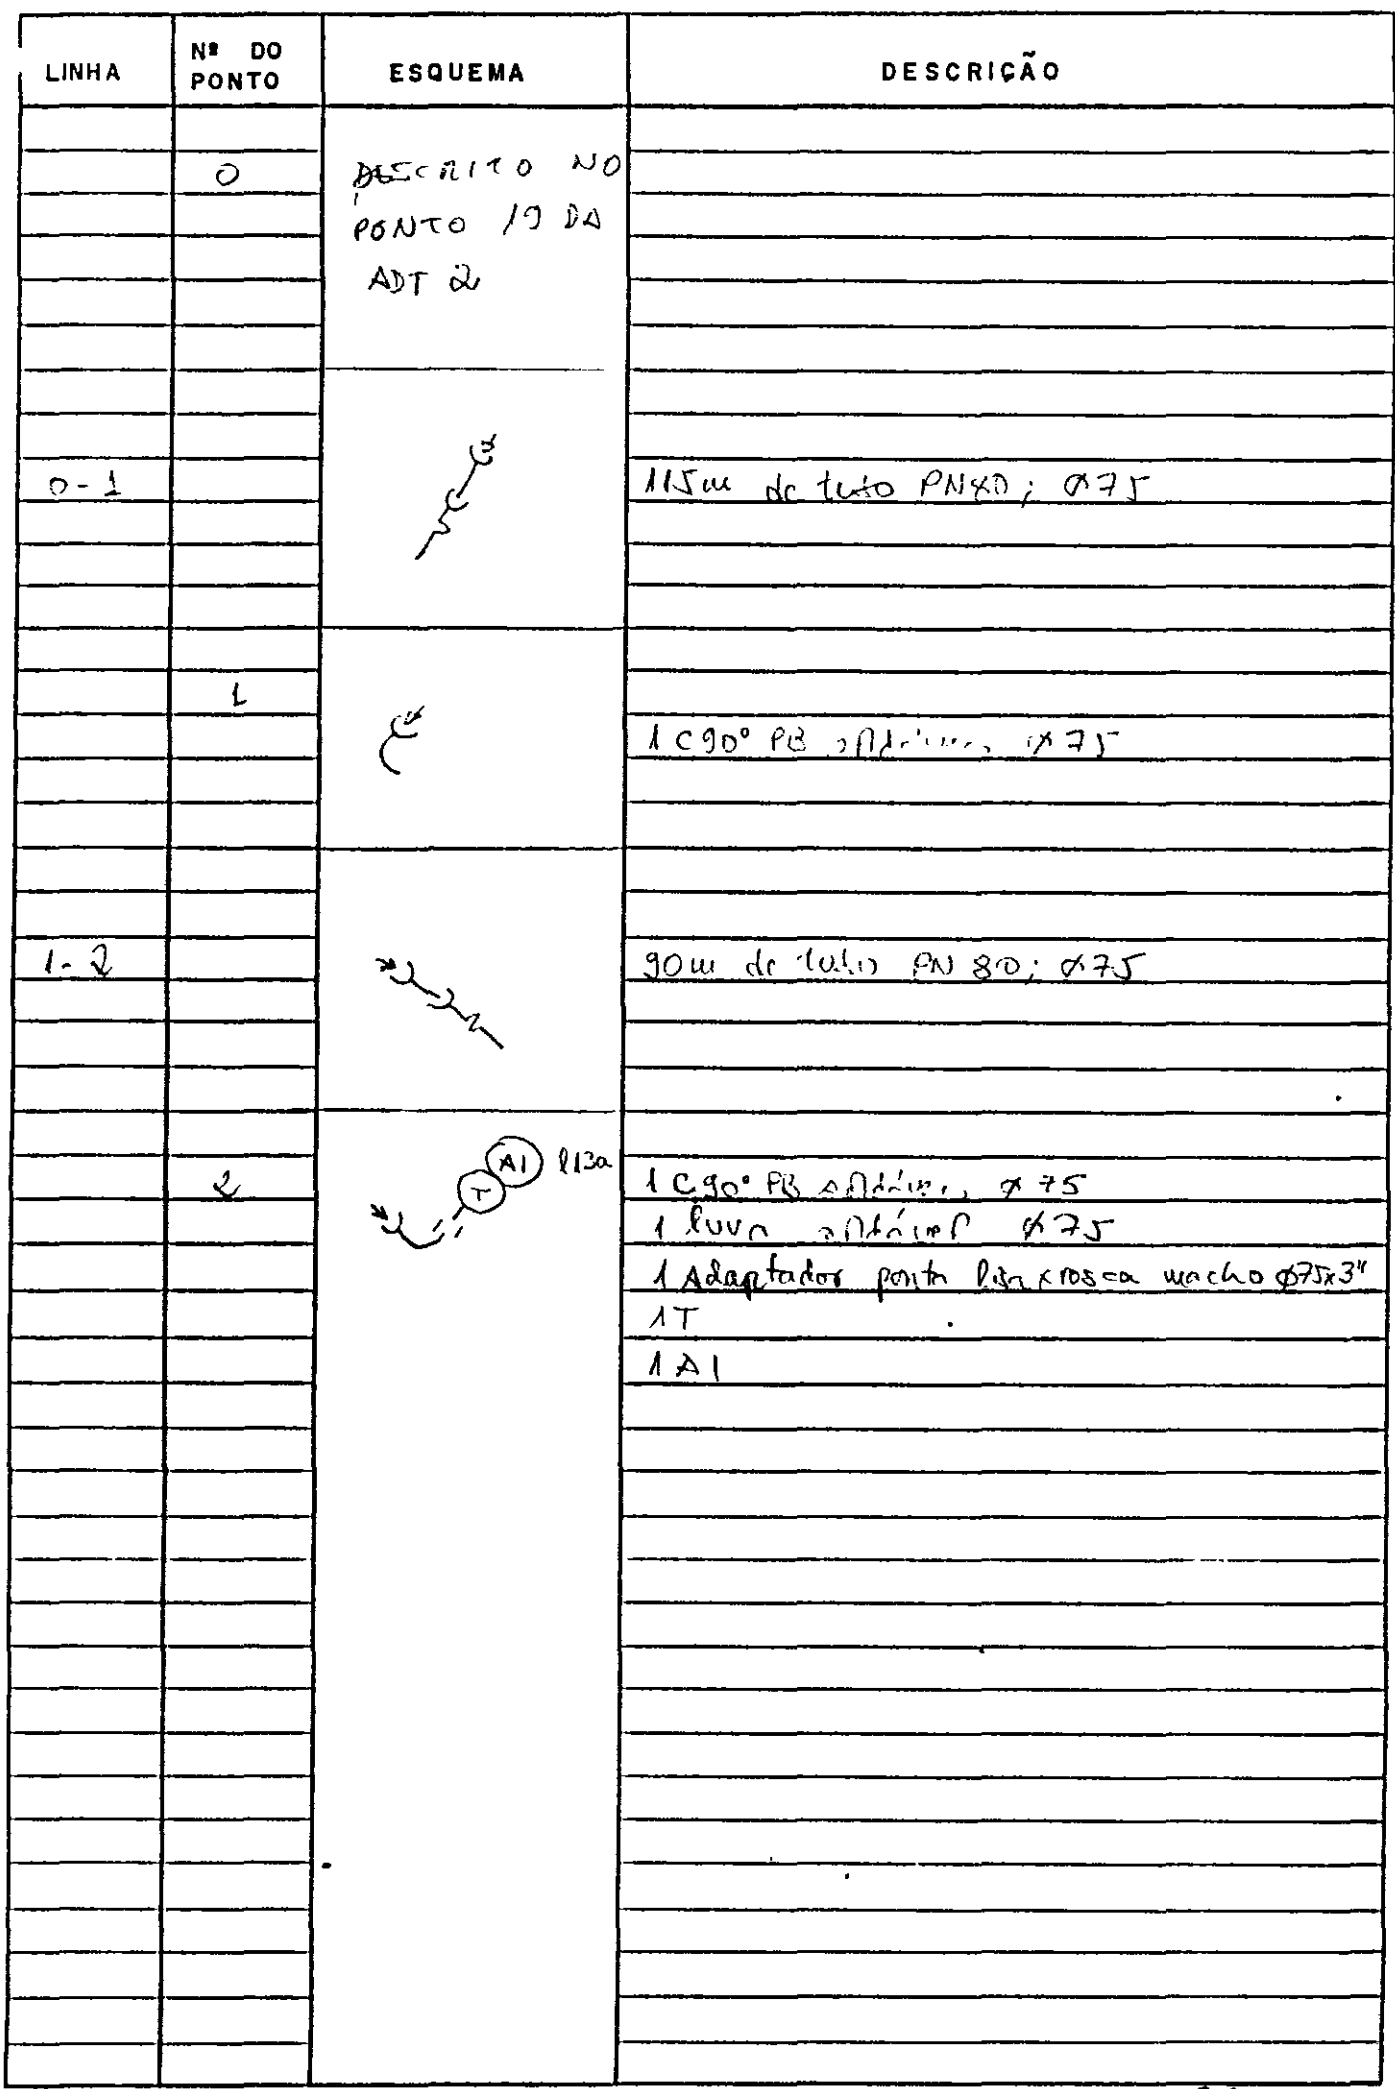 LINHA
Nº DO PONTO
ESQUEMA
DESCRIÇÃO
0
DESCRITO NO
PONTO 19 DA
ADT 2
0-1
115m de tubo PN80; Ø75
1
1 C90° PB Ø75
1-2
90m de tubo PN 80; Ø75
2
T
AI
1 C90° PB Ø75
1 luva Ø75
1 Adaptador ponta lisa x rosca macho Ø75x3"
1T
1 AI